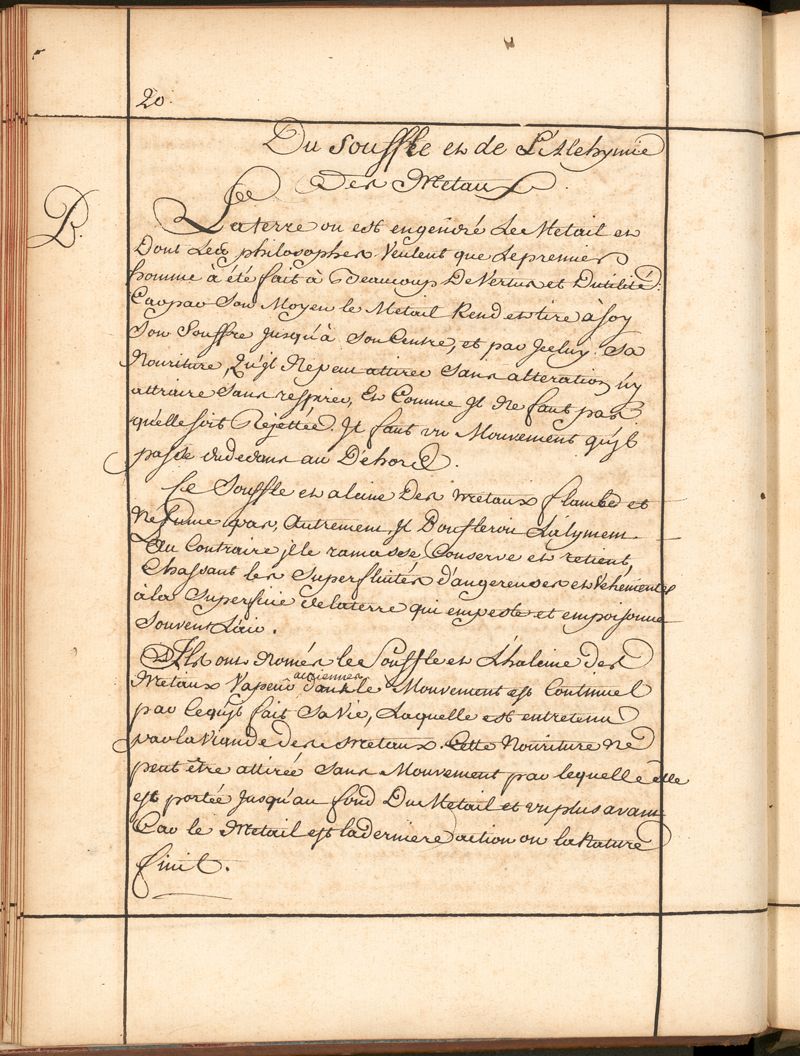 20.
Du Souffle et de L'Alchymie
Des Metaux.
B.
La terre ou est engendré Le Metail et
Dont Les philosophes Veulent que Le premier
homme a été fait à Beaucoup De Vertus et D'utilité.
Car par Son Moyen le Metail Rend et tire à Soy
Son Souffre jusqu'à Son Centre, et par Jceluy Sa
Nouriture, Qu'jl Ne peu attirer Sans alteration ny
attraire Sans respirer, Et Comme Jl Ne faut pas
qu'elle soit Rejettée. Jl faut un Mouvement qu'jl
passe du dedans au Dehors.
Ce Souffle et aleine Des metaux flambe et
Ne fume pas, Autrement Jl Doufleroit L'alyment.
Au Contraire jl le ramasse Conserve et retient,
Chassant les Superfluités d'angereuses et Vehementes
à la Superficie de la terre qui empeste et empoisonne
Souvent L'air.
Ils ont Només le Souffle et L'haleine des
Metaux Vapeur aeriennes dont le Mouvement est Continuel
par Lequ'jl fait Sa Vie, Laquelle est entretenu
par la Viande des Metaux. Cette Nouriture Ne
peut être attirée Sans Mouvement par lequelle elle
est portée Jusqu'au fond Du Metail et un plus avant
Car le Metail est la derniere action ou la Nature
finit.